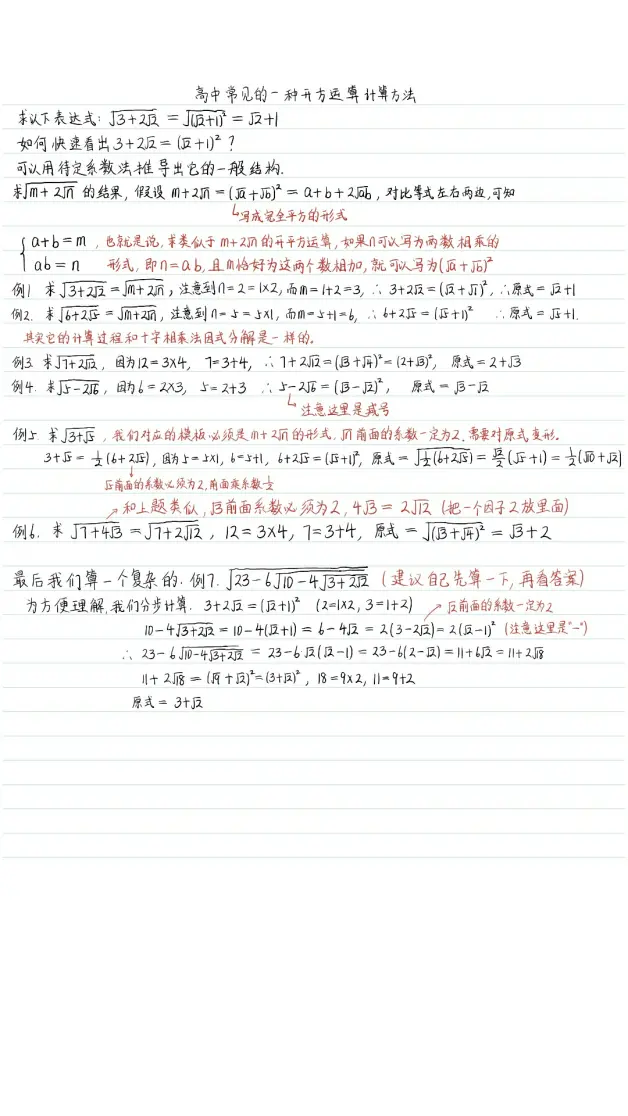 高中常见的一种开方运算计算方法
求以下表达式：√(3+2√2) = √((√2+1)²) = √2+1
如何快速看出3+2√2=(√2+1)²？
可以用待定系数法推导出它的一般结构.
求√(m+2√n) 的结果，假设 m+2√n=(√a+√b)²=a+b+2√ab，对比等式左右两边,可知
↳写成完全平方的形式
{ a+b=m，也就是说，求类似于m+2√n的开平方运算，如果n可以写为两数相乘的
ab=n 形式，即n=ab，且m恰好为这两个数相加，就可以写为(√a+√b)²
例1. 求√(3+2√2)=√(m+2√n)，注意到n=2=1×2，而m=1+2=3，∴ 3+2√2=(√2+√1)²，∴原式=√2+1
例2. 求√(6+2√5)=√(m+2√n)，注意到n=5=5×1，而m=5+1=6，∴ 6+2√5=(√5+1)² ∴原式=√5+1.
其实它的计算过程和十字相乘法因式分解是一样的。
例3. 求√(7+2√12)，因为12=3×4，7=3+4，∴7+2√12=(√3+√4)²=(2+√3)²，原式=2+√3
例4. 求√(5-2√6)，因为6=2×3，5=2+3 ∴5-2√6=(√3-√2)²， 原式=√3-√2
↳注意这里是减号
例5. 求√(3+√5)，我们对应的模板必须是m+2√n的形式，√n前面的系数一定为2，需要对原式变形。
3+√5=½(6+2√5)，因为5=5×1，6=5+1，6+2√5=(√5+1)²，原式=√(½(6+2√5))=√2/2(√5+1)=½(√10+√2)
√5前面的系数必须为2，前面乘系数½
和上题类似，√3前面系数必须为2，4√3=2√12（把一个因子2放里面）
例6. 求√(7+4√3)=√(7+2√12)，12=3×4，7=3+4，原式=√((√3+√4)²)=√3+2
最后我们算一个复杂的. 例7. √(23-6√(10-4√(3+2√2)))（建议自己先算一下，再看答案）
为方便理解，我们分步计算. 3+2√2=(√2+1)² (2=1×2，3=1+2) √2前面的系数一定为2
10-4√(3+2√2)=10-4(√2+1)=6-4√2=2(3-2√2)=2(√2-1)²（注意这里是"-"）
∴ 23-6√(10-4√(3+2√2))=23-6√2(√2-1)=23-6(2-√2)=11+6√2=11+2√18
11+2√18=(√9+√2)²=(3+√2)²，18=9×2，11=9+2
原式=3+√2